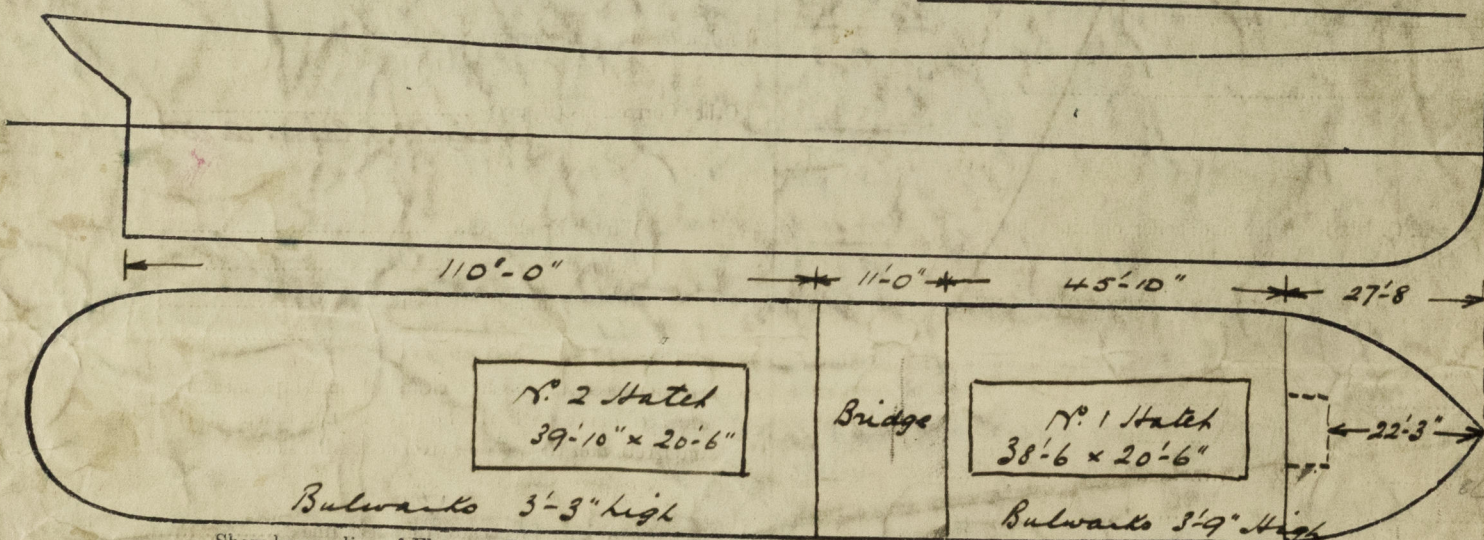 110'-0" 11'-0" 45'-10" 27'-8
No. 2 Hatch
39'-10" x 20'-6"
Bridge
No. 1 Hatch
38'-6 x 20'-6"
22'-3"
Bulwarks 3'-3" high
Bulwarks 3'-9" High